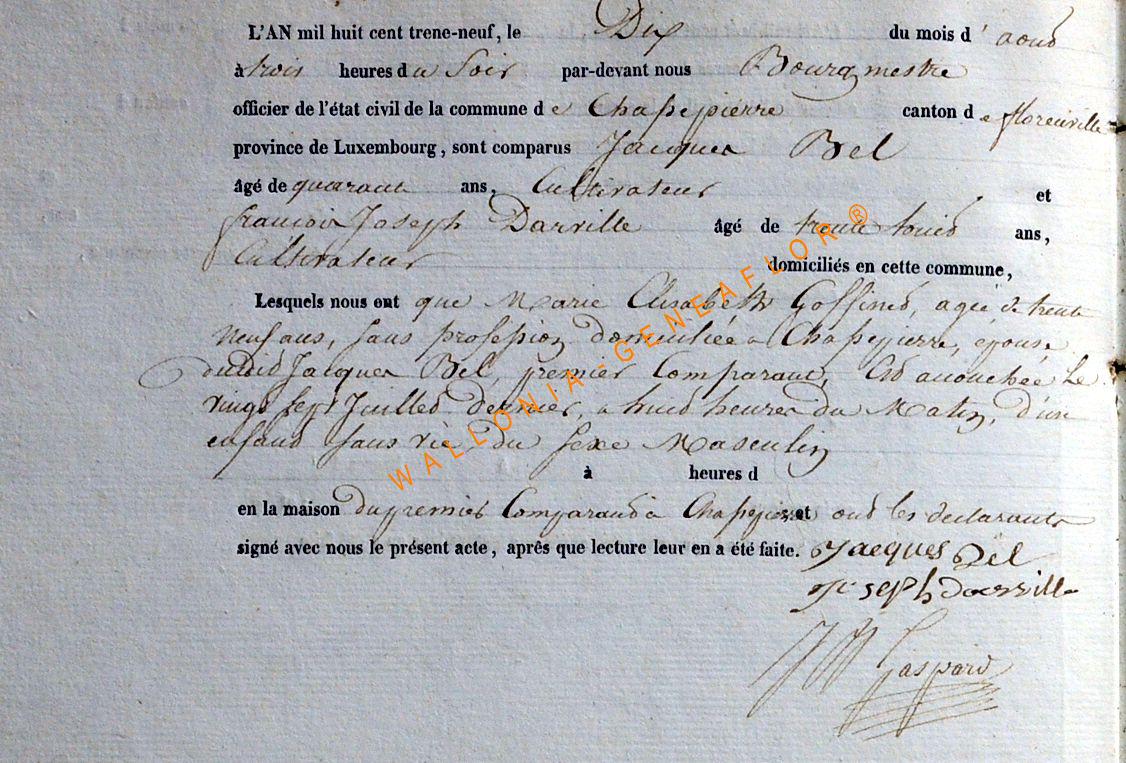 L'AN mil huit cent trene-neuf, le Dix du mois d' aout
à trois heures du Soir par-devant nous Bourgmestre
officier de l'état civil de la commune de Chapepierre canton de florenville
province de Luxembourg, sont comparus Jacques Bel
âgé de quarant ans, Cultivateur et
francois Joseph Darville âgé de trente huid ans,
Cultivateur domiciliés en cette commune,
Lesquels nous ont que Marie Elisabeth Goffined, agée de trente
neuf ans, sans profession domiciliée a Chapepierre, épouse
dudid Jacques Bel, premier Comparant, Est accouchée Le
vingt sept Juilled dernier, a huid heures du Matin, d'un
enfand sans vie du sexe Masculin
à heures d
en la maison du premier Comparand a Chapepierre, et ond les declarants
signé avec nous le présent acte, après que lecture leur en a été faite. Jacques Bel
Joseph darville
Gaspard
WALLONIA-GENEAFLOR®